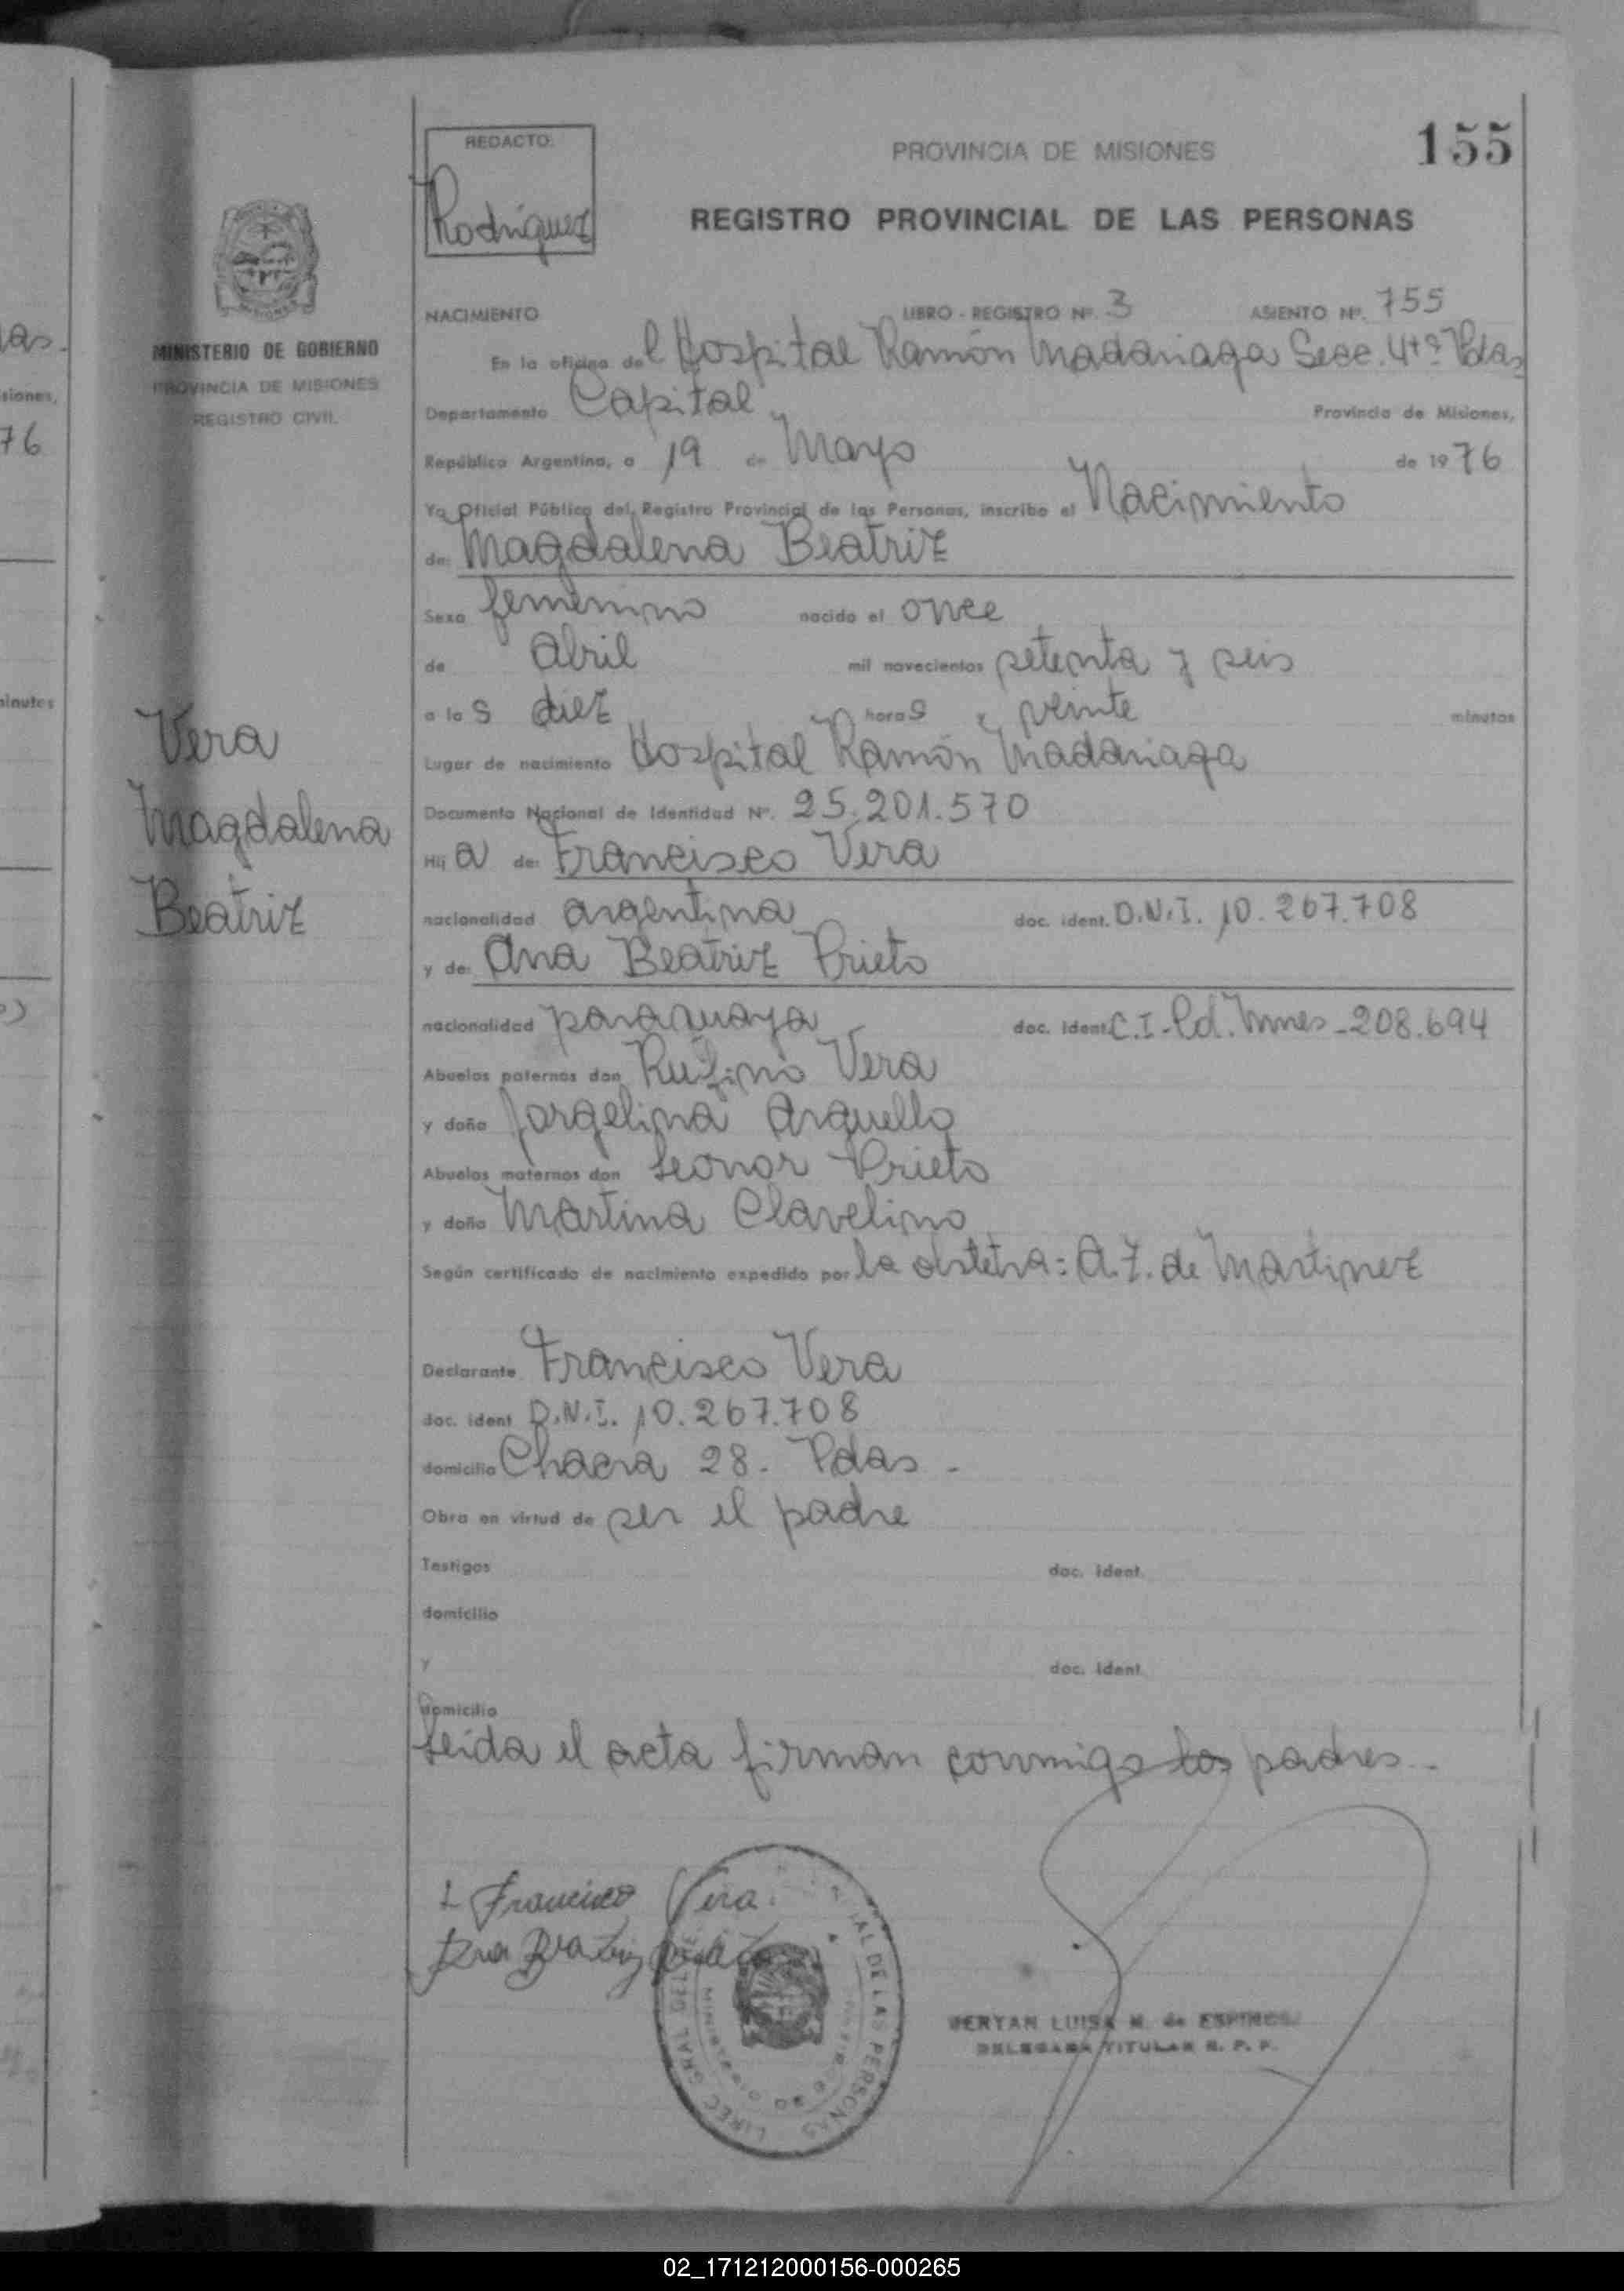 REDACTO:
Rodríguez
PROVINCIA DE MISIONES
155
REGISTRO PROVINCIAL DE LAS PERSONAS
MINISTERIO DE GOBIERNO
PROVINCIA DE MISIONES
REGISTRO CIVIL
NACIMIENTO LIBRO - REGISTRO Nº. 3 ASIENTO Nº. 755
En la oficina del Hospital Ramón Madariaga Secc. 4ta Pdas
Departamento Capital Provincia de Misiones,
República Argentina, a 19 de Mayo de 1976
Yo Oficial Público del Registro Provincial de las Personas, inscribo el Nacimiento
de: Magdalena Beatriz
Sexo femenino nacido el once
de abril mil novecientos setenta y seis
a las diez horas y veinte minutos
Lugar de nacimiento Hospital Ramón Madariaga
Documento Nacional de Identidad Nº. 25.201.570
Vera
Magdalena
Beatriz
Hija de: Francisco Vera
nacionalidad argentina doc. ident. D.N.I. 10.267.708
y de: Ana Beatriz Prieto
nacionalidad paraguaya doc. ident. C.I. Pol. Mnes - 208.694
Abuelos paternos don Rufino Vera
y doña Jorgelina Arguello
Abuelos maternos don Leonor Prieto
y doña Martina Clavelino
Según certificado de nacimiento expedido por la obstetra: A. Z. de Martinez
Declarante Francisco Vera
doc. ident D.N.I. 10.267.708
domicilio Chacra 28. Pdas -
Obra en virtud de ser el padre
Testigos doc. ident.
domicilio
y doc. ident.
domicilio
Leída el acta firman conmigo los padres -
Francisco Vera.
Ana Beatriz Prieto
DELEGADA TITULAR R. P. P.
las.
siones,
76
minutos
02_171212000156-000265